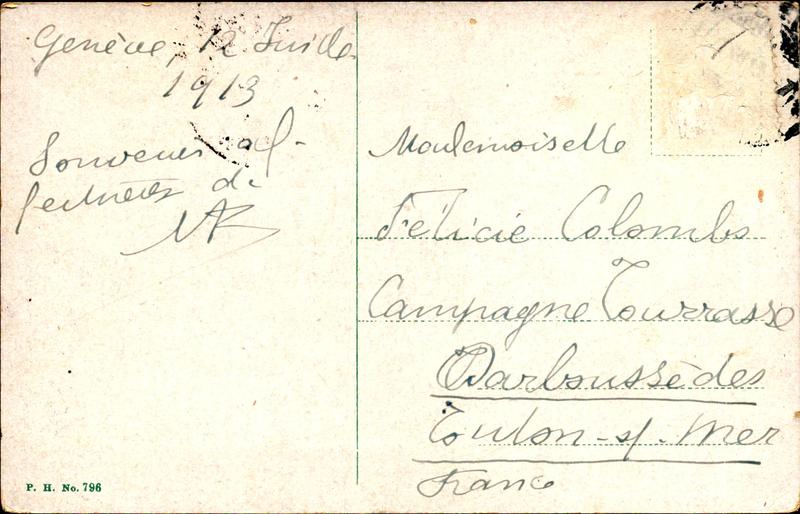 Genève, 12 Juillet
1913
Souvenir af-
fectueux de
Mademoiselle
Félicie Colombs
Campagne Tourrasse
Darboussèdes
Toulon-s/-Mer
France
P. H. No. 796